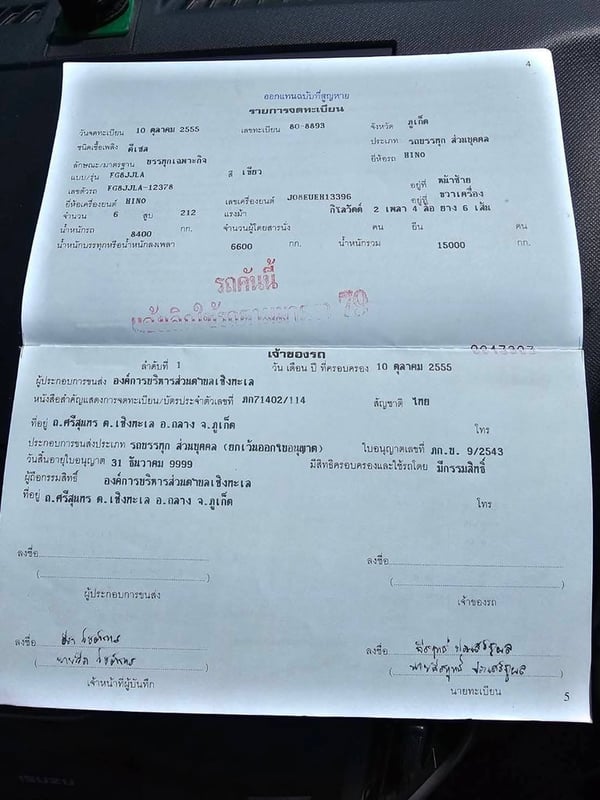 4
ออกแทนฉบับที่สูญหาย
รายการจดทะเบียน
วันจดทะเบียน 10 ตุลาคม 2555 เลขทะเบียน 80-8893 จังหวัด ภูเก็ต
ชนิดเชื้อเพลิง ดีเซล ประเภท รถบรรทุก ส่วนบุคคล
ลักษณะ/มาตรฐาน บรรทุกเฉพาะกิจ ยี่ห้อรถ HINO
แบบ/รุ่น FG8JJLA สี เขียว
เลขตัวรถ FG8JJLA-12378 อยู่ที่ หน้าซ้าย
ยี่ห้อเครื่องยนต์ HINO เลขเครื่องยนต์ J08EUEH13396 อยู่ที่ ขวาเครื่อง
จำนวน 6 สูบ 212 แรงม้า กิโลวัตต์ 2 เพลา 4 ล้อ ยาง 6 เส้น
น้ำหนักรถ 8400 กก. จำนวนผู้โดยสารนั่ง คน ยืน คน
น้ำหนักบรรทุกหรือน้ำหนักลงเพลา 6600 กก. น้ำหนักรวม 15000 กก.
รถคันนี้
79
เจ้าของรถ
ลำดับที่ 1 วัน เดือน ปี ที่ครอบครอง 10 ตุลาคม 2555
ผู้ประกอบการขนส่ง องค์การบริหารส่วนตำบลเชิงทะเล
หนังสือสำคัญแสดงการจดทะเบียน/บัตรประจำตัวเลขที่ ภก71402/114 สัญชาติ ไทย
ที่อยู่ ถ.ศรีสุนทร ต.เชิงทะเล อ.ถลาง จ.ภูเก็ต โทร
ประกอบการขนส่งประเภท รถบรรทุก ส่วนบุคคล (ยกเว้นออกใบอนุญาต) ใบอนุญาตเลขที่ ภก.ข. 9/2543
วันสิ้นอายุใบอนุญาต 31 ธันวาคม 9999 มีสิทธิครอบครองและใช้รถโดย มีกรรมสิทธิ์
ผู้ถือกรรมสิทธิ์ องค์การบริหารส่วนตำบลเชิงทะเล
ที่อยู่ ถ.ศรีสุนทร ต.เชิงทะเล อ.ถลาง จ.ภูเก็ต โทร
ลงชื่อ ลงชื่อ
ผู้ประกอบการขนส่ง เจ้าของรถ
ลงชื่อ ลงชื่อ
เจ้าหน้าที่ผู้บันทึก นายทะเบียน
5
ISUZU